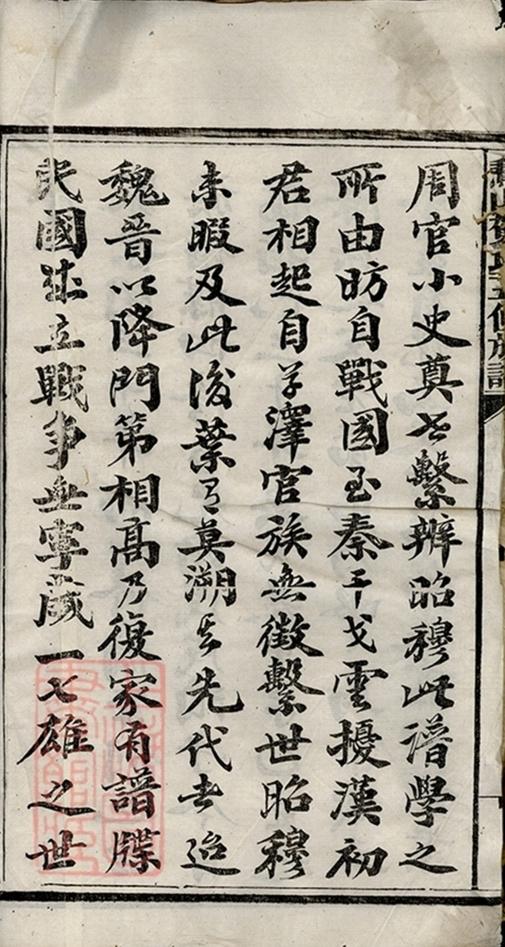 周官小史奠世繫辨昭穆此譜學之
所由昉自戰國至秦干戈雲擾漢初
君相起自草澤官族無徵繫世昭穆
未暇及此後葉有莫溯其先代者迨
魏晉以降門第相高乃復家有譜牒
民國成立戰爭無寧歲一七雄之世
五修族譜